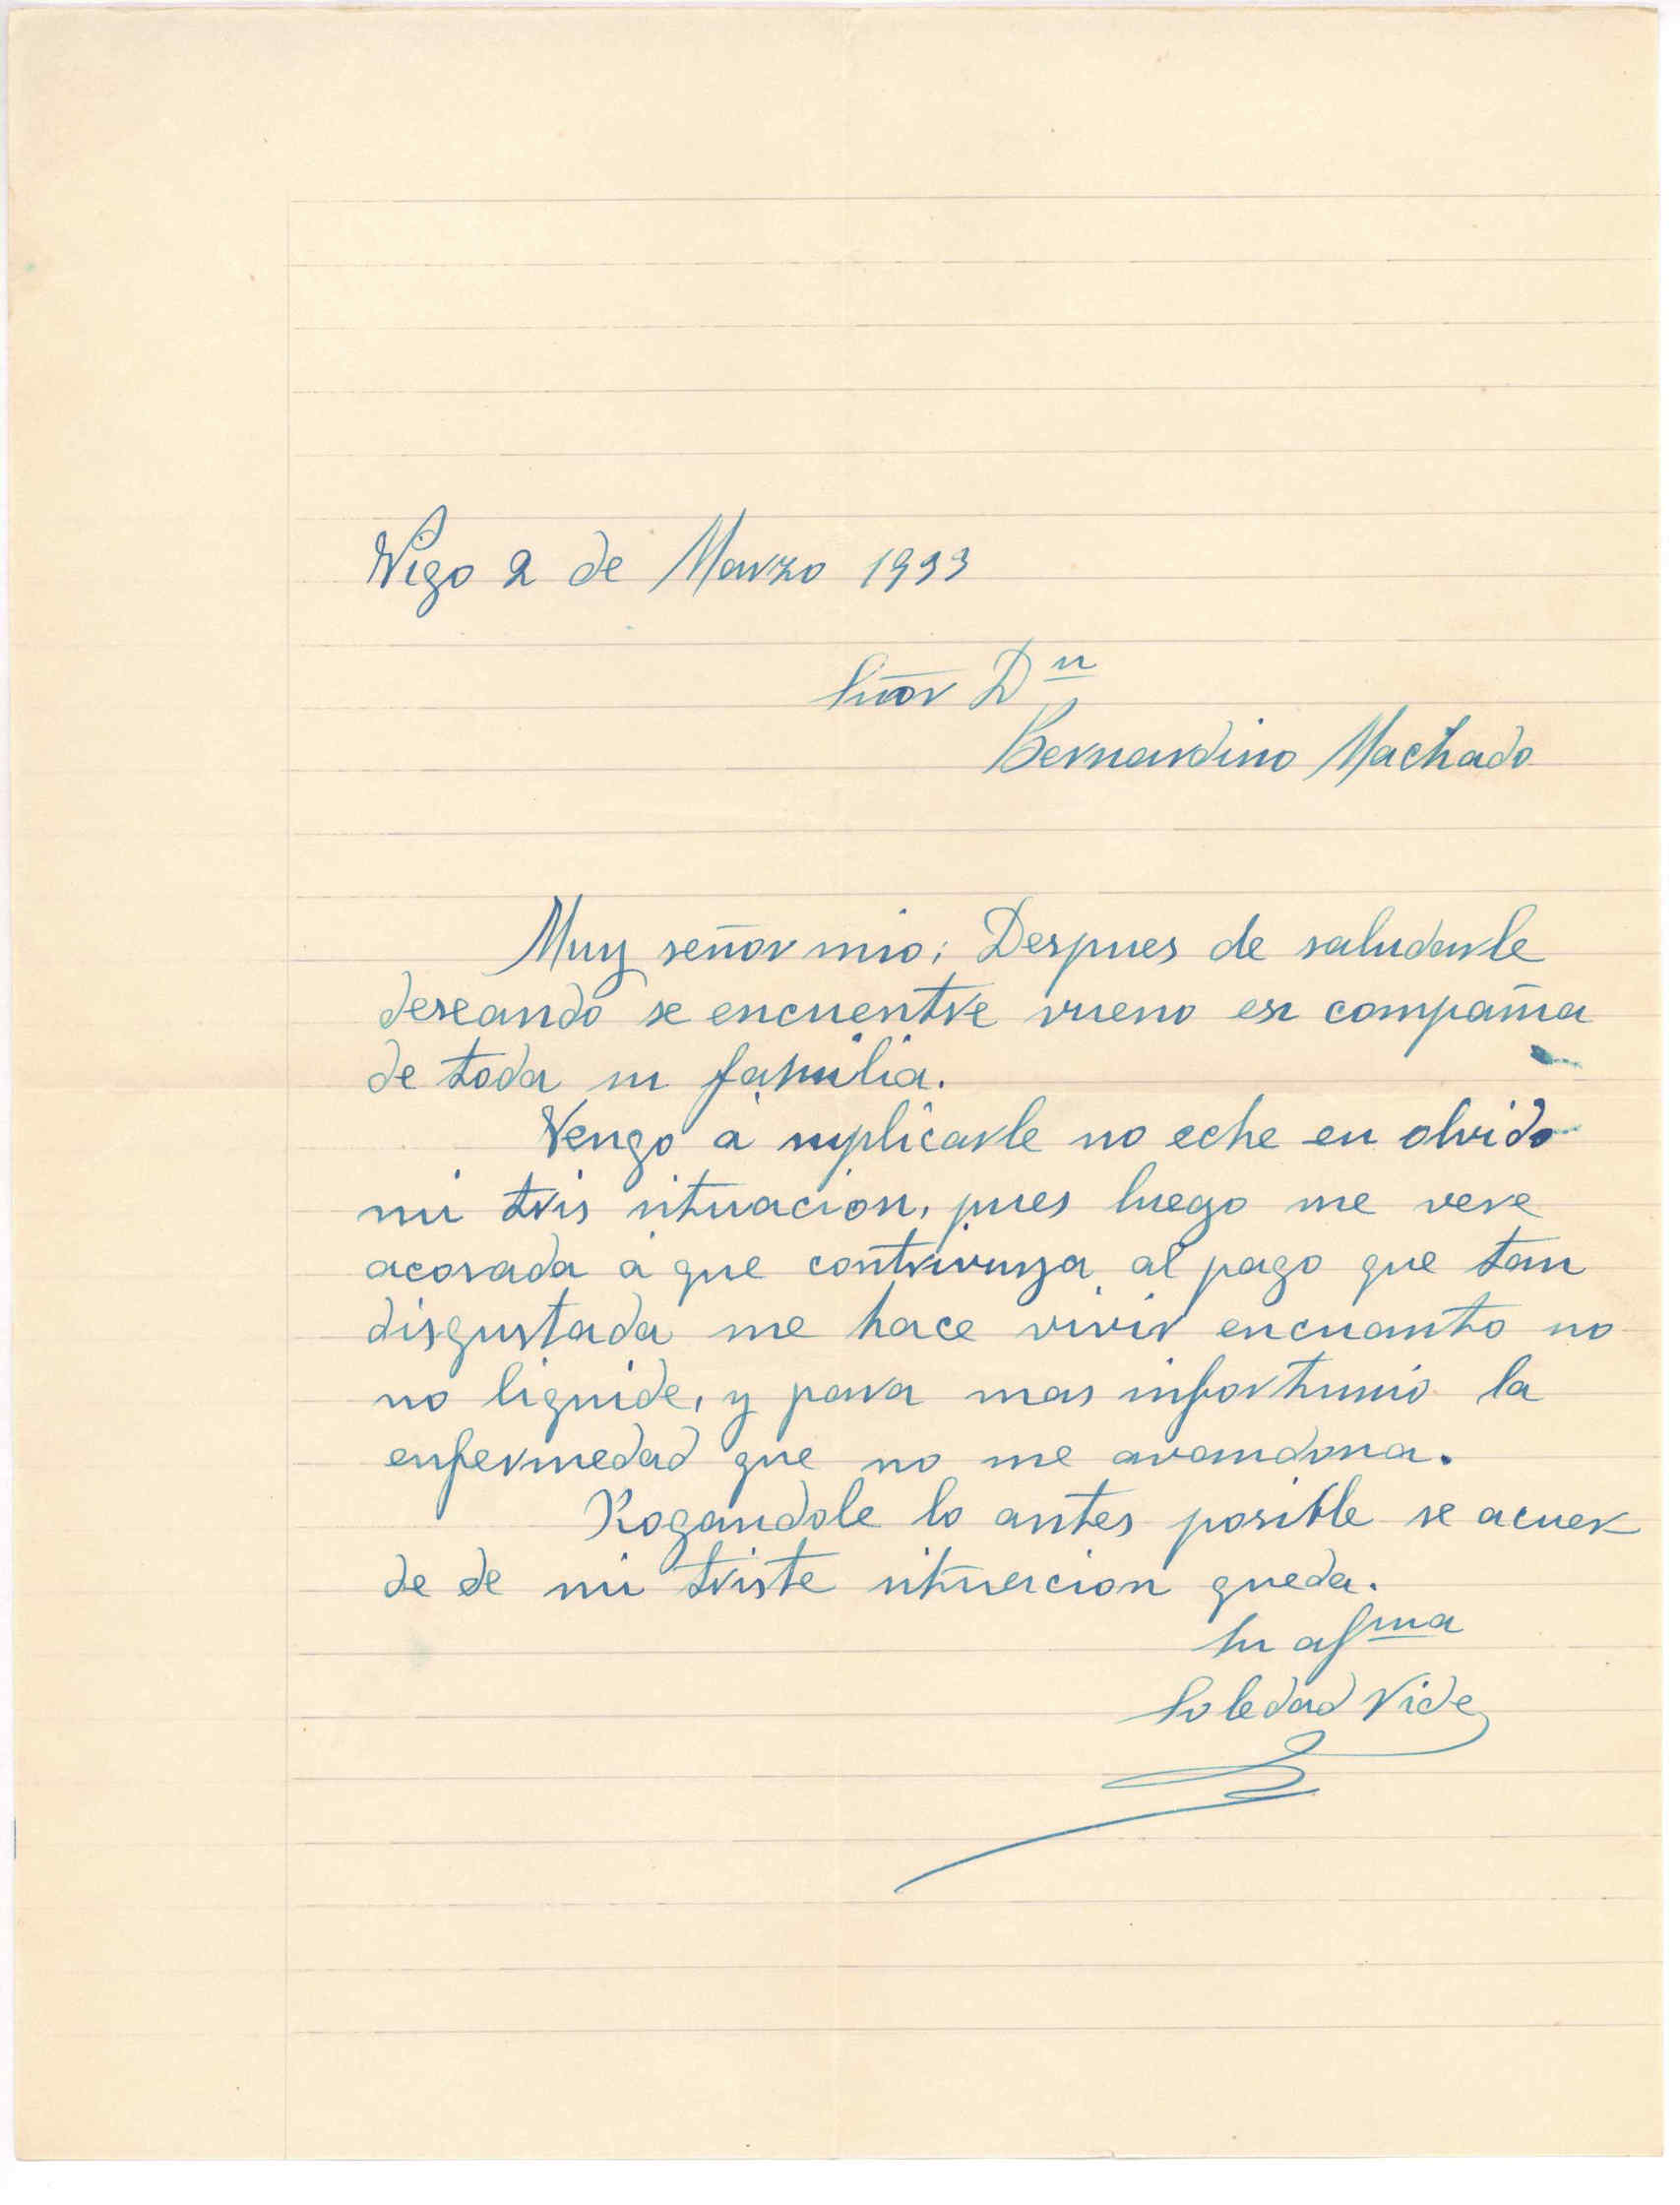 Vigo 2 de Marzo 1933
Señor Dn
Bernardino Machado
Muy señor mio; Despues de saludarle
deseando se encuentre vueno en compañia
de toda su familia.
Vengo á suplicarle no eche en olvido
mi tris situacion, pues luego me vere
acosada á que contrivuya al pago que tan
disgustada me hace vivir encuanto no
no liquide, y para mas infortunio la
enfermedad que no me avandona.
Rogandole lo antes posible se acuer
de de mi triste situacion queda.
Su afma
Soledad Vide